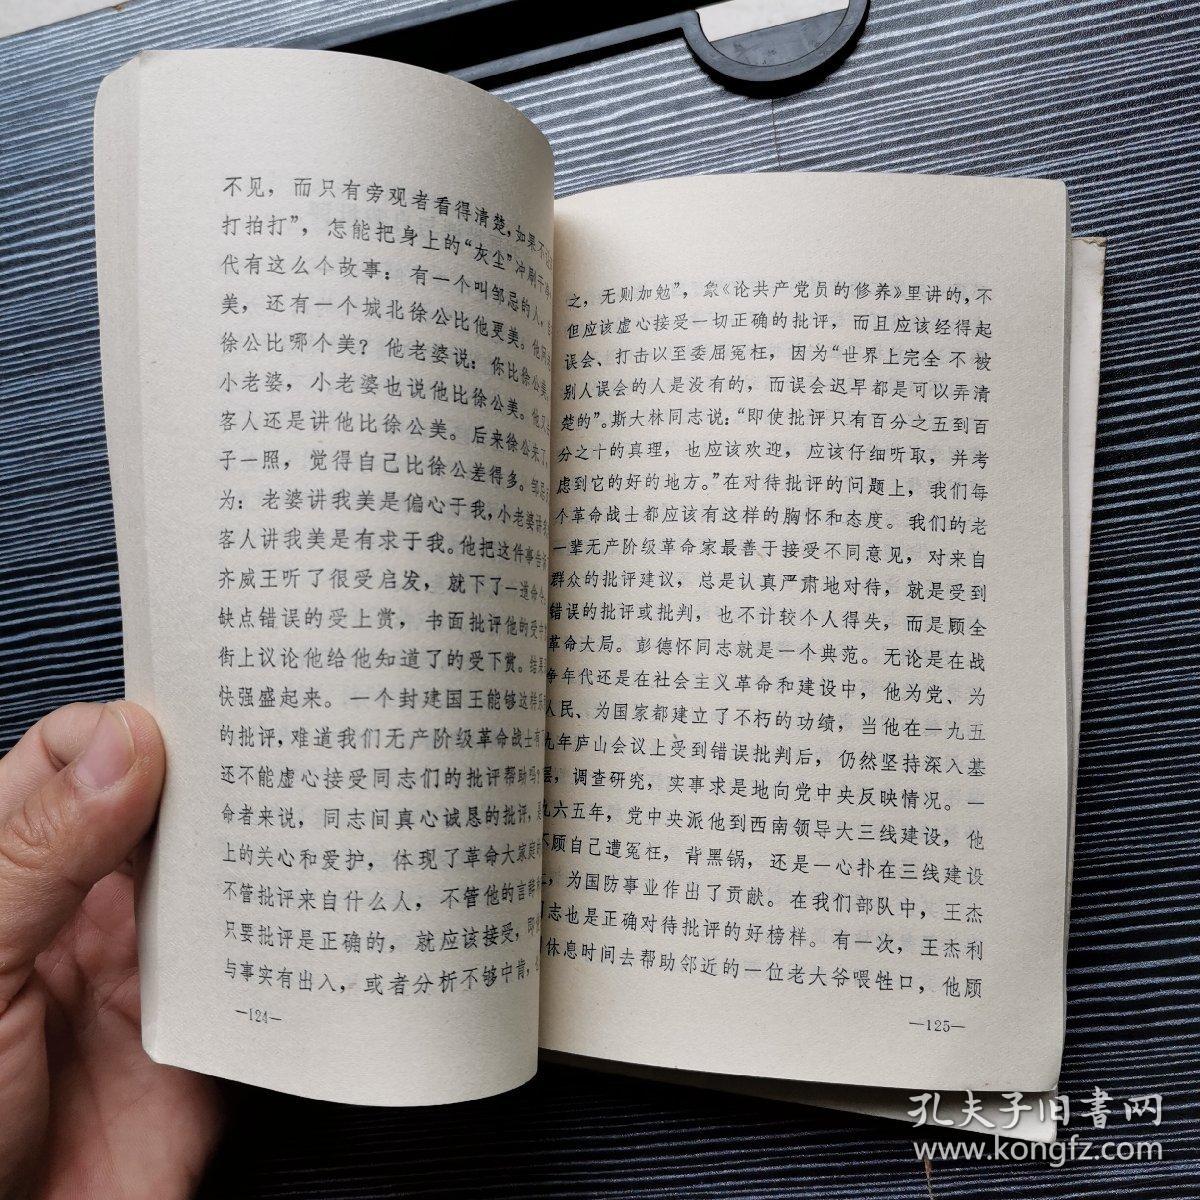 不见，而只有旁观者看得清楚，如果不
打拍打”，怎能把身上的“灰尘”冲刷干
代有这么个故事：有一个叫邹忌的人，
美，还有一个城北徐公比他更美。他问
徐公比哪个美？他老婆说：你比徐公美。
小老婆，小老婆也说他比徐公美。他又
客人还是讲他比徐公美。后来徐公来了，
子一照，觉得自己比徐公差得多。邹忌
为：老婆讲我美是偏心于我，小老婆讲
客人讲我美是有求于我。他把这件事告
齐威王听了很受启发，就下了一道命令，
缺点错误的受上赏，书面批评他的受中
街上议论他给他知道了的受下赏。结果
快强盛起来。一个封建国王能够这样乐
的批评，难道我们无产阶级革命战士有
还不能虚心接受同志们的批评帮助吗？
命者来说，同志间真心诚恳的批评，是
上的关心和爱护，体现了革命大家庭
不管批评来自什么人，不管他的言辞
只要批评是正确的，就应该接受，即使
与事实有出入，或者分析不够中肯，也
—124—
之，无则加勉”，象《论共产党员的修养》里讲的，不
但应该虚心接受一切正确的批评，而且应该经得起
误会、打击以至委屈冤枉，因为“世界上完全不被
别人误会的人是没有的，而误会迟早都是可以弄清
楚的”。斯大林同志说：“即使批评只有百分之五到百
分之十的真理，也应该欢迎，应该仔细听取，并考
虑到它的好的地方。”在对待批评的问题上，我们每
个革命战士都应该有这样的胸怀和态度。我们的老
一辈无产阶级革命家最善于接受不同意见，对来自
群众的批评建议，总是认真严肃地对待，就是受到
错误的批评或批判，也不计较个人得失，而是顾全
革命大局。彭德怀同志就是一个典范。无论是在战
争年代还是在社会主义革命和建设中，他为党、为
人民、为国家都建立了不朽的功绩，当他在一九五
九年庐山会议上受到错误批判后，仍然坚持深入基
层，调查研究，实事求是地向党中央反映情况。一
九六五年，党中央派他到西南领导大三线建设，他
不顾自己遭冤枉，背黑锅，还是一心扑在三线建设
上，为国防事业作出了贡献。在我们部队中，王杰
同志也是正确对待批评的好榜样。有一次，王杰利
休息时间去帮助邻近的一位老大爷喂牲口，他顾
—125—
孔夫子旧書网
www.kongfz.com